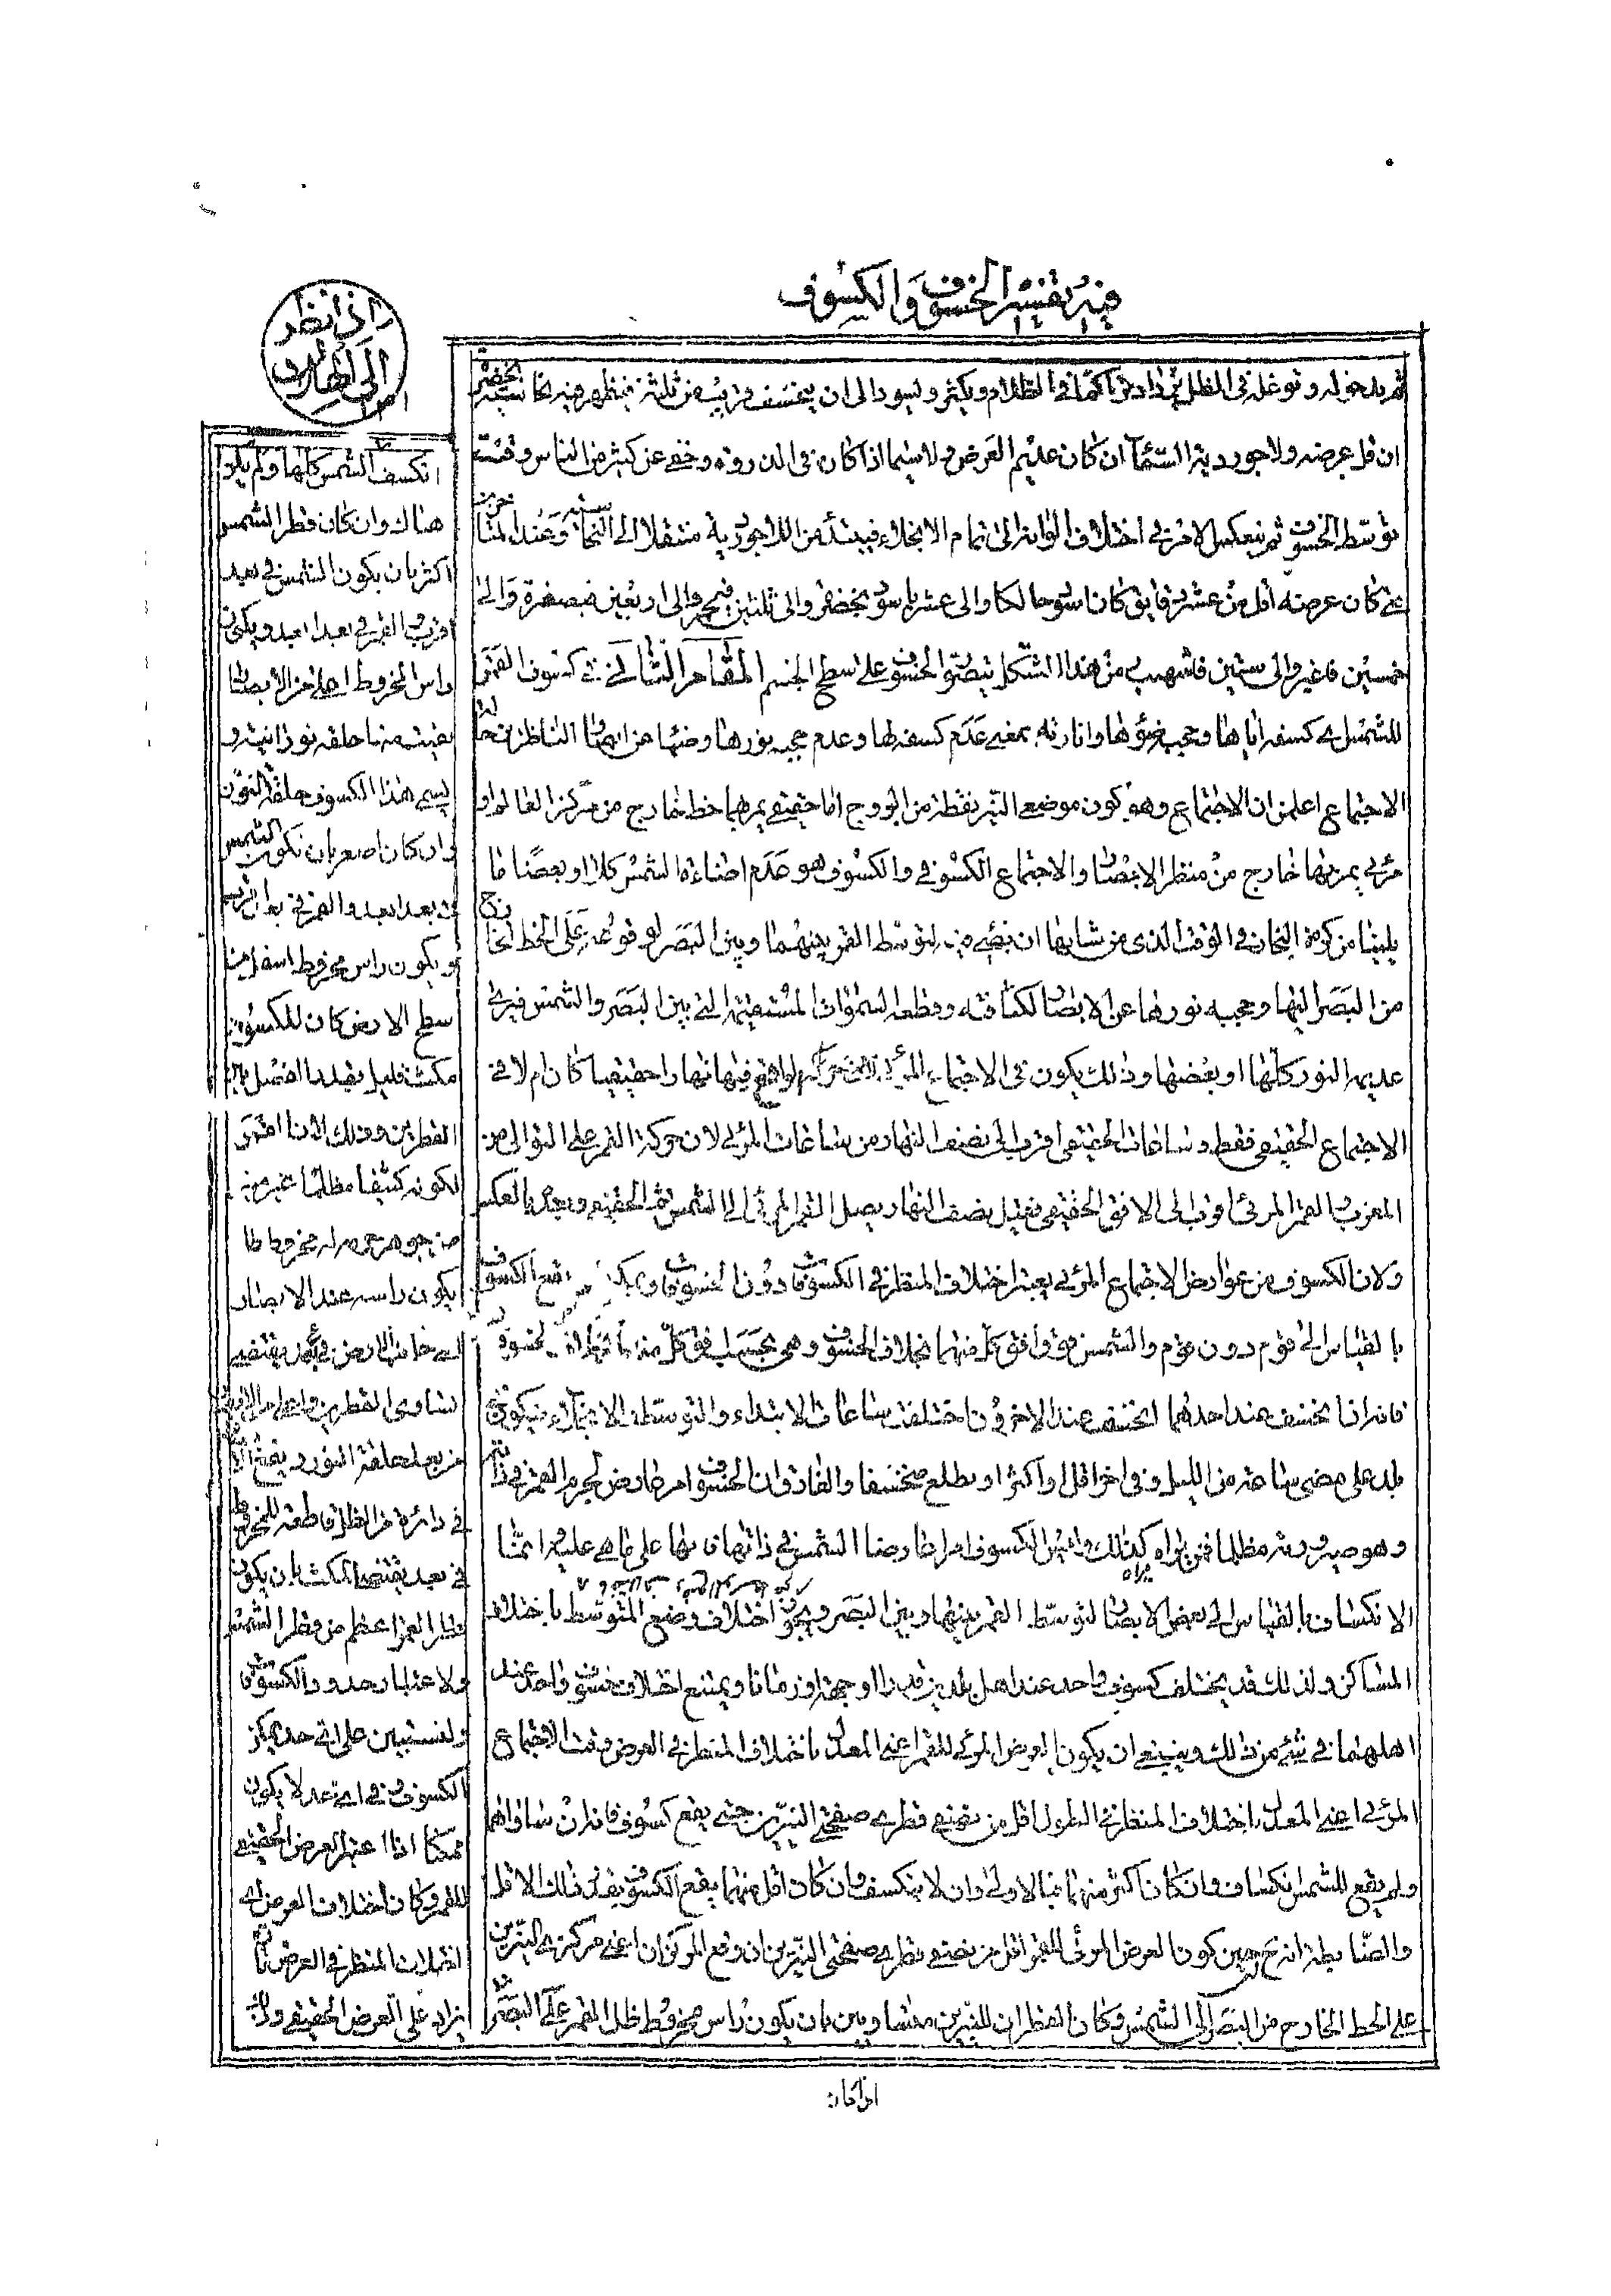 فيه تفسير الخسوف والكسوف
ثم بدخوله وتوغله فى الظل يزداد تراكما فى الظلام ويكثر ويسود الى ان ينخسف قريب من ثلثه فيظهر فيه نحاسية
ان قل عرضه ولاجوردية السما ان كان عديم العرض ولا سيما اذا كان فى الذروة وخفى عن كثير من الناس وقت
توسط الخسوف ثم ينعكس الامر فى اختلاف الوانه الى تمام الانجلاء فيبتدئ من اللاجوردية منتقلا الى النحاسية وعند
كان عرضه اقل من عشر دقايق كان اسود حالكا والى عشرين اسود بخضرة والى ثلثين فبحمرة والى اربعين فبصفرة والى
خمسين فاغبر والى ستين فاشهب من هذا الشكل يتصور الخسوف على سطح الجسم المقام الثانى فى كسوف القمر
للشمس اى كسفه اياها وحجب ضوئها وانارته بمعنى عدم كسفه لها وعدم حجبه نورها وضئها من ابصار الناظرين
الاجتماع اعلمن ان الاجتماع وهو كون موضعى النير نقطة من البروج اما حقيقى يمر بهما خط خارج من مركز العالم او
مرئى يمر بهما خارج من منظر الابصار والاجتماع الكسوفى والكسوف هو عدم اضاءة الشمس كلا او بعضا ما
يلينا من كرة البخار فى الوقت الذى من شانها ان تضىء فيه لتوسط القمر بينهما وبين البصر لوقوعه على الخط الخارج
من البصر اليها وحجبه نورها عن الابصار لكثافته وقطعه السموات المستقيمة التى بين البصر والشمس فيرى
عديمة النور كلها او بعضها وذلك يكون فى الاجتماع المرئى الواقع فيها نهارا حقيقيا كان ام لا فى
الاجتماع الحقيقى فقط وساعات الحقيقى اقرب الى نصف النهار من ساعات المرئى لان حركة القمر على التوالى من
المغرب والقمر المرئى اقرب الى الافق الحقيقى فقبل نصف النهار يصل القمر المرئى الى الشمس ثم الحقيقى وبعده بالعكس
ولان الكسوف من عوارض الاجتماع المرئى يعتبر اختلاف المنظر فى الكسوفات دون الخسوفات ويمكن ان يقع الكسوف
بالقياس الى قوم دون قوم والشمس فوق افق كل منهما بخلاف الخسوف
فانه اذا انخسف عند احدهما انخسف عند الاخر وان اختلفت ساعات الابتداء والتوسط والانجلاء فيكون فى
بلد على مضى ساعة من الليل وفى اخر اقل او اكثر او يطلع منخسفا والفارق ان الخسوف امر عارض لجرم القمر فى ذاته
وهو صيرورته مظلما فمن يراه يراه كذلك وليس الكسوف امرا عارضا الشمس فى ذاتها فانها على ما هى عليه انما
الانكساف بالقياس الى بعض الابصار لتوسط القمر بينها وبين البصر ويجوز اختلاف وضع المتوسط باختلاف
المساكن ولذلك قد يختلف كسوف واحد عند اهل بلدين قدرا او جهة او زمانا ويمتنع اختلاف خسوف واحد عند
اهلهما فى شئ من ذلك وينبغى ان يكون العرض المرئى للقمر اعنى المعدل باختلاف المنظر فى العرض وقت الاجتماع
المرئى اعنى المعدل باختلاف المنظر فى الطول اقل من نصفى قطرى صفحتى النيرين حتى يقع كسوف فانه ان ساواهما
ولم يقع للشمس انكساف وان كان اكثر منهما فبالاولى وان لا ينكسف وان كان اقل منهما يقع الكسوف بقدر ذلك الاقل
والضابطة انه ح حين كون العرض المرئى للقمر اقل من نصفى قطرى صفحتى النيرين ان وقع المركزان اعنى مركزى النيرين
على الخط الخارج من البصر الى الشمس وكان القطران للنيرين متساويين بان يكون راس مخروط ظل القمر على البصر
انكسف الشمس كلها ولم يكن
هناك وان كان قطر الشمس
اكثر بان يكون الشمس فى بعد
اقرب والقمر فى بعد ابعد ويكون
راس المخروط اعلى من الابصار
بقيت منها حلقة نورانية و
يسمى هذا الكسوف حلقة النور
وان كان اصغر بان تكون الشمس
فى بعد ابعد والقمر فى بعد اقرب
ويكون راس مخروط اسفل من
سطح الارض كان للكسوف
مكث قليل بقدر فضل ما بين
القطرين وذلك لان القمر
لكونه كثيفا مظلما غير
يكون راسه عند الابصار
تساوى القطرين واعلى من الابصار
من بعد حلقة النور ويقع
فى دائرة من الظل قاطعة للمخروط
فى بعد يقتضى المكث بان يكون
قطر القمر اعظم من قطر الشمس
ولاعتبار حدود الكسوف
ولنستبين على اى حد يمكن
الكسوف وفى اى حد لا يكون
ممكنا اذا اعتبر العرض الحقيقى
للقمر وكان اختلاف العرض اى
اختلاف المنظر فى العرض تا
يزاد على العرض الحقيقى
اذا نظر
الى
اذا كان